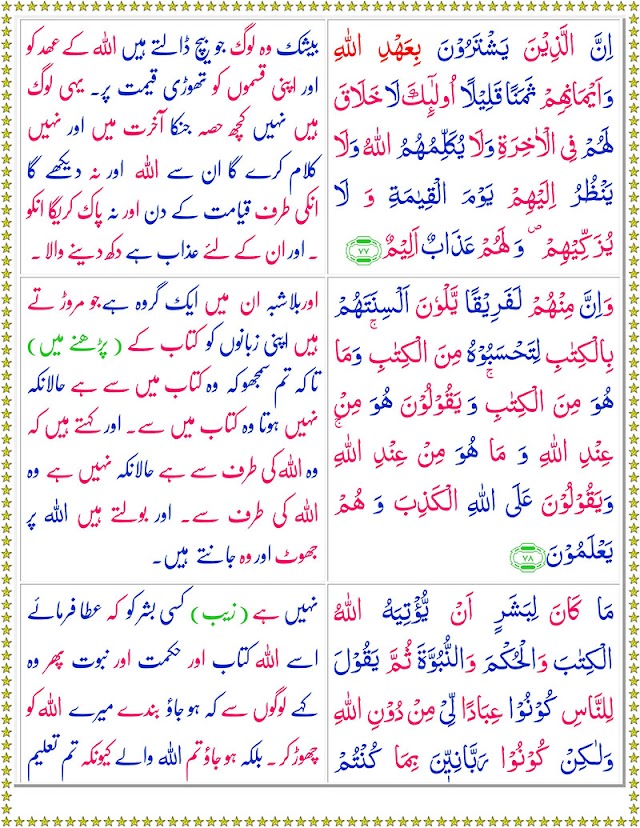 اِنَّ الَّذِيْنَ يَشْتَرُوْنَ بِعَهْدِ اللّٰهِ
وَاَيْمَانِهِمْ ثَمَنًا قَلِيْلًا اُولٰٓئِكَ لَا خَلَاقَ
لَهُمْ فِى الْاٰخِرَةِ وَلَا يُكَلِّمُهُمُ اللّٰهُ وَلَا
يَنْظُرُ اِلَيْهِمْ يَوْمَ الْقِيٰمَةِ وَ لَا
يُزَكِّيْهِمْ ۖ وَ لَهُمْ عَذَابٌ اَلِيْمٌ ﴿۷۷﴾
بیشک وہ لوگ جو بیچ ڈالتے ہیں اللہ کے عہد کو
اور اپنی قسموں کو تھوڑی قیمت پر۔ یہی لوگ
ہیں نہیں کچھ حصہ جنکا آخرت میں اور نہیں
کلام کرے گا ان سے اللہ اور نہ دیکھے گا
انکی طرف قیامت کے دن اور نہ پاک کریگا انکو
۔ اور ان کے لئے عذاب ہے دکھ دینے والا ۔
وَاِنَّ مِنْهُمْ لَفَرِيْقًا يَّلْوٗنَ اَلْسِنَتَهُمْ
بِالْكِتٰبِ لِتَحْسَبُوْهُ مِنَ الْكِتٰبِ وَمَا
هُوَ مِنَ الْكِتٰبِ ۚ وَ يَقُوْلُوْنَ هُوَ مِنْ
عِنْدِ اللّٰهِ وَ مَا هُوَ مِنْ عِنْدِ اللّٰهِ ۚ
وَيَقُوْلُوْنَ عَلَى اللّٰهِ الْكَذِبَ وَ هُمْ
يَعْلَمُوْنَ ﴿۷۸﴾
اوربلاشبہ ان میں ایک گروہ ہے جو مروڑ تے
ہیں اپنی زبانوں کو کتاب کے ( پڑھنے میں )
تا کہ تم سمجھو کہ وہ کتاب میں سے ہے حالانکہ
نہیں ہوتا وہ کتاب میں سے۔ اور کہتے ہیں کہ
وہ اللہ کی طرف سے ہے حالانکہ نہیں ہے وہ
اللہ کی طرف سے۔ اور بولتے ہیں اللہ پر
جھوٹ اور وہ جانتے ہیں۔
مَا كَانَ لِبَشَرٍ اَنْ يُّؤْتِيَهُ اللّٰهُ
الْكِتٰبَ وَالْحُكْمَ وَالنُّبُوَّةَ ثُمَّ يَقُوْلَ
لِلنَّاسِ كُوْنُوْا عِبَادًا لِّىْ مِنْ دُوْنِ اللّٰهِ
وَلٰكِنْ كُوْنُوْا رَبّٰنِيّٖنَ بِمَا كُنْتُمْ
نہیں ہے ( زیب ) کسی بشر کو کہ عطا فرمائے
اسے اللہ کتاب اور حکمت اور نبوت پھر وہ
کہے لوگوں سے کہ ہو جاؤ بندے میرے اللہ کو
چھوڑ کر ۔ بلکہ ہو جاؤ تم اللہ والے کیونکہ تم تعلیم